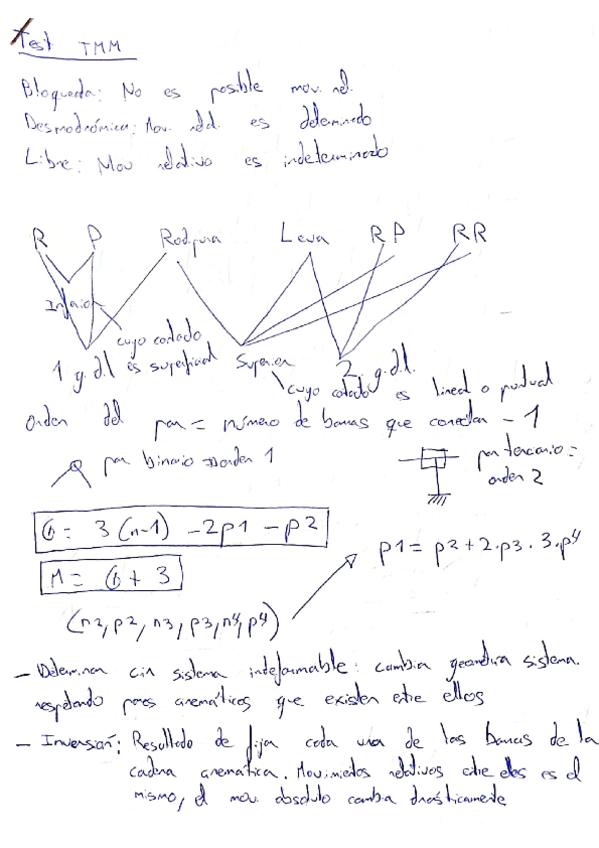 Test TMM
Bloqueada: No es posible mov. rel.
Desmodrómica: Mov. rel. es determinado
Libre: Mov relativo es indeterminado
R P Rodadura Leva RP RR
Inferior
cuyo contacto
1 g.d.l es superficial Superior 2. g.d.l.
cuyo contacto es lineal o puntual
Orden del par = número de barras que conectan - 1
par binario => orden 1
par terciario =
orden 2
G = 3(n-1) - 2p1 - p2
p1 = p2 + 2.p3 . 3.p4
M = G + 3
(n2, p2, n3, p3, n4, p4)
- Determinar cin sistema indeformable: cambia geometría sistema.
respetando pares cinemáticos que existen entre ellos
- Inversión: Resultado de fijar cada una de las barras de la
cadena cinemática. Movimientos relativos entre ellos es el
mismo, el mov. absoluto cambia drásticamente